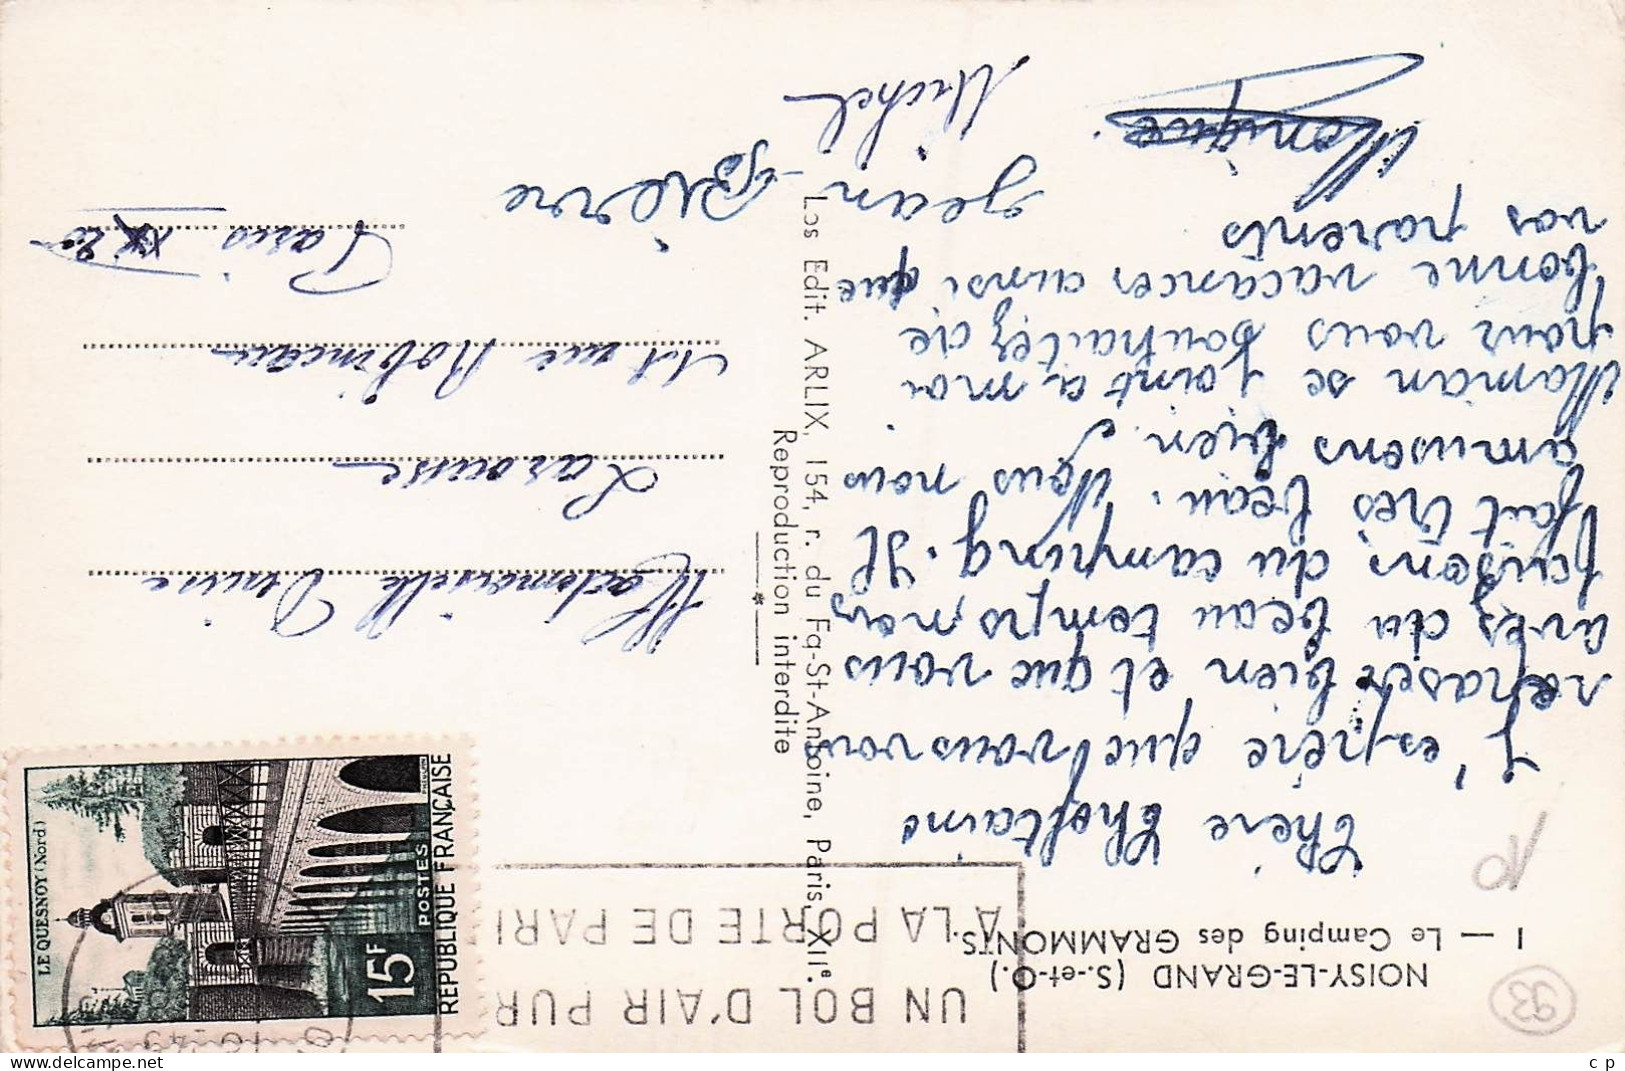 NOISY-LE-GRAND (S.-et-O.)
1 — Le Camping des GRAMMONTS.
UN BOL D'AIR PUR
A LA PORTE DE PARIS
Chère
J'espère que vous vous
reposer bien et que vous
avez du beau temps, nous
faisons du camping. Il
fait très beau. Nous nous
amusons bien.
Maman se joint a moi
pour vous souhaitez de
bonne vacances ainsi que
vos parents
Monique.
Jean-Pierre
Michel
Mademoiselle Denise
Larousse
rue Robineau
Paris XX 20
Los Edit. ARLIX, 154, r. du Fg-St-Antoine, Paris, XIIe.
Reproduction interdite
LE QUESNOY (Nord)
15F
POSTES
REPUBLIQUE FRANÇAISE
10
93
c p